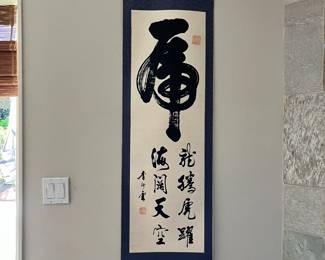 虎
龍騰虎躍
海闊天空